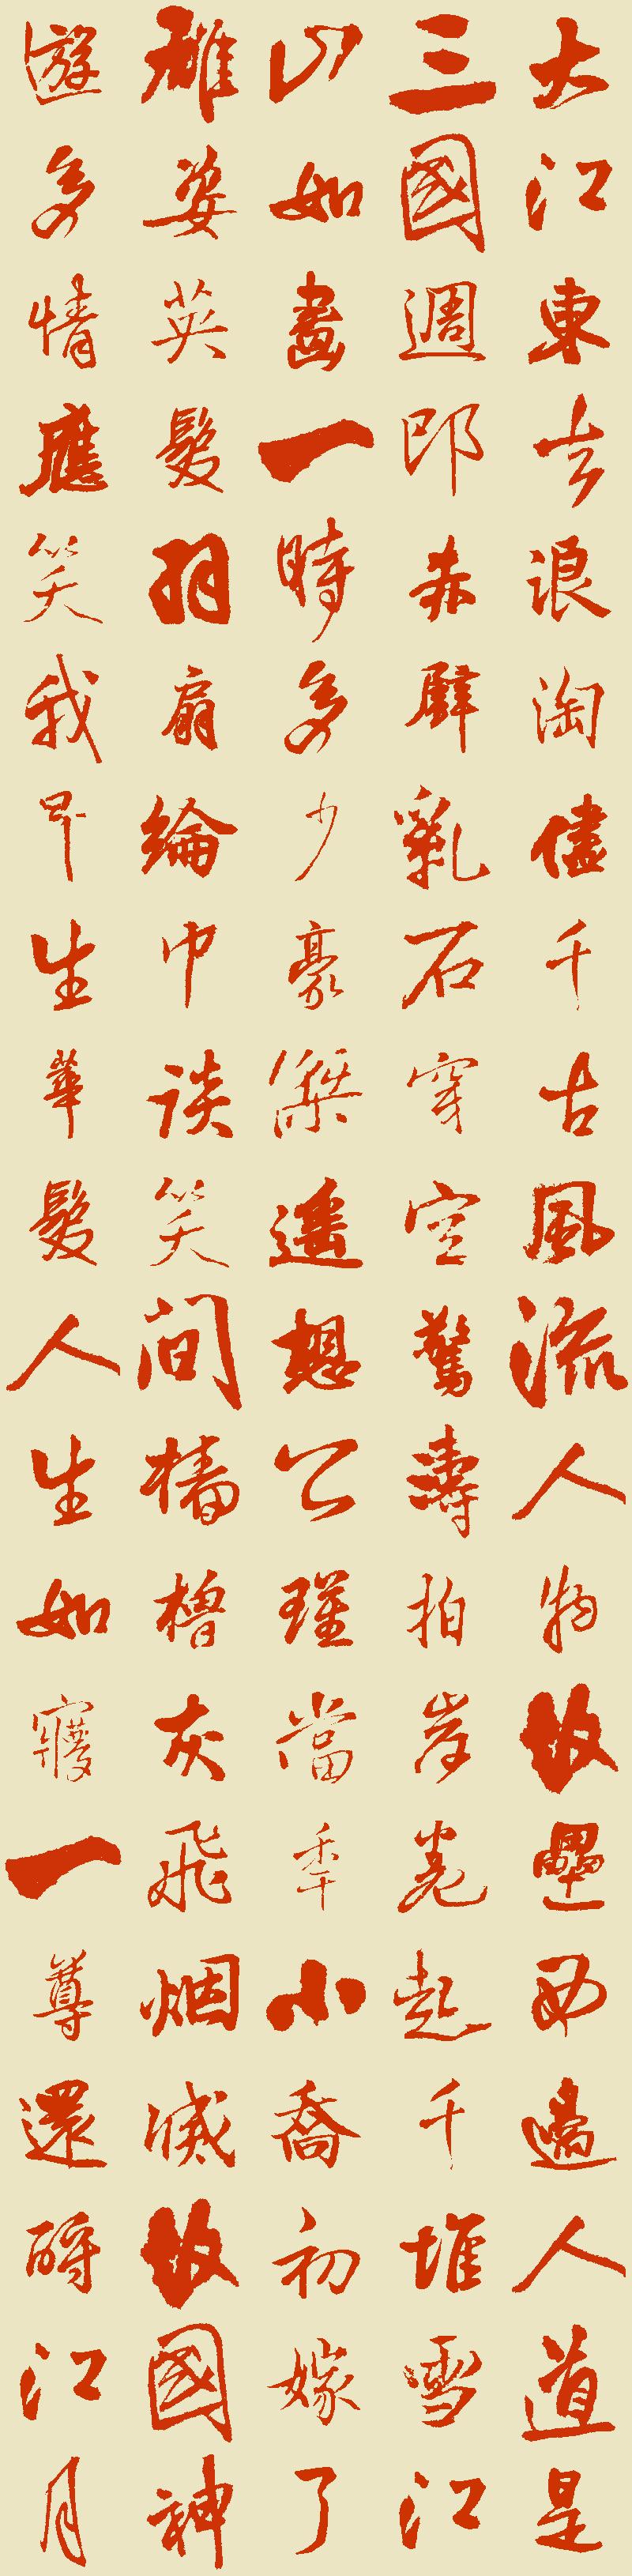 大江東去浪淘儘千古風流人物故壘西邊人道是
三國週郎赤壁亂石穿空驚濤拍岸卷起千堆雪江
山如畫一時多少豪傑遥想公瑾當年小喬初嫁了
雄姿英髮羽扇綸巾談笑間檣櫓灰飛烟滅故國神
遊多情應笑我早生華髮人生如夢一尊還酹江月